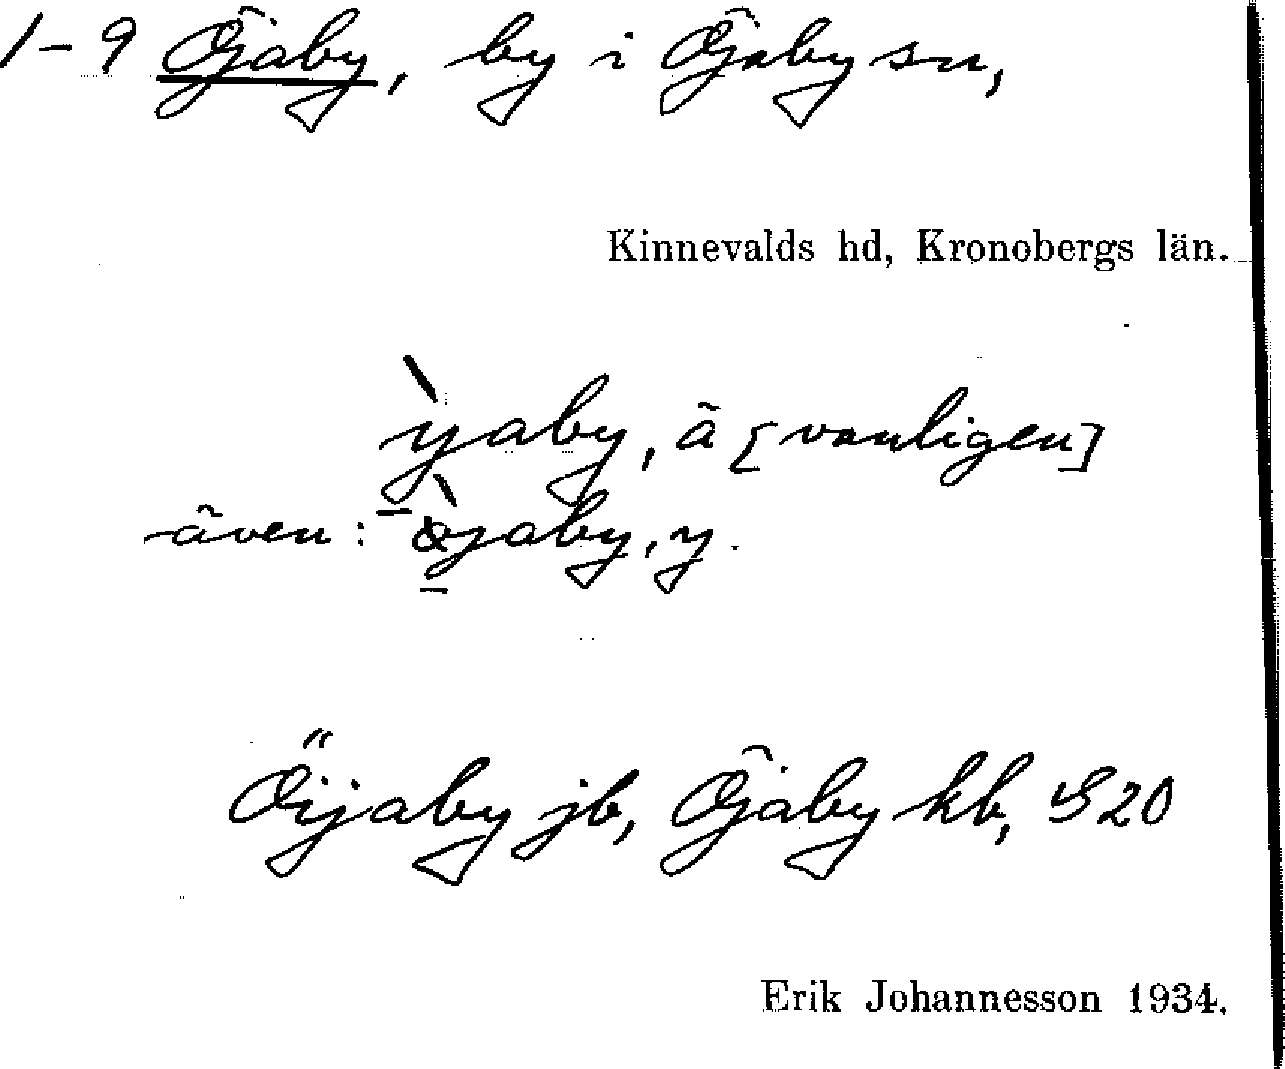 1-9 Öjaby, by i Öjaby sn,
Kinnevalds hd, Kronobergs län.
ỳaby, ä [vanligen]
även: öjaby, y.
Öijaby jb, Öjaby kb, S20
Erik Johannesson 1934.